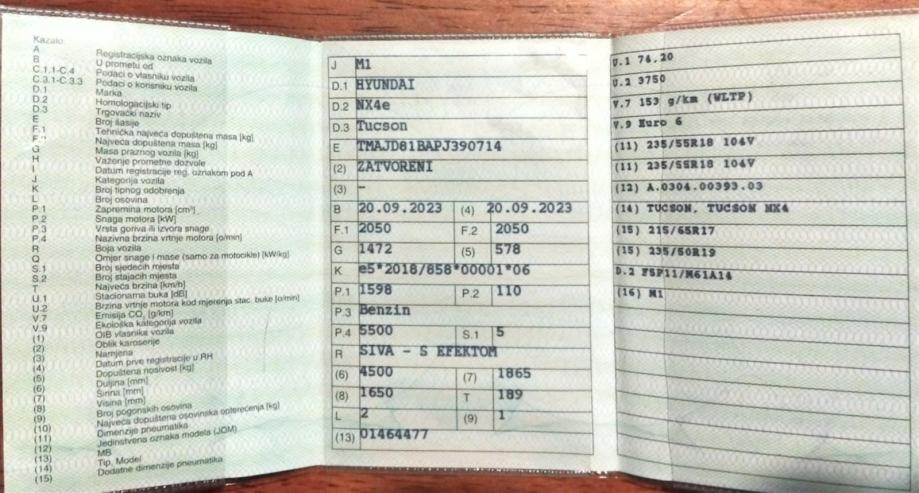 Kazalo:
A Registracijska oznaka vozila
B U prometu od
C.1.1-C.4 Podaci o vlasniku vozila
C.3.1-C.3.3 Podaci o korisniku vozila
D.1 Marka
D.2 Homologacijski tip
D.3 Trgovački naziv
E Broj šasije
F.1 Tehnička najveća dopuštena masa [kg]
Najveća dopuštena masa [kg]
G Masa praznog vozila [kg]
H Važenje prometne dozvole
I Datum registracije reg. oznakom pod A
J Kategorija vozila
K Broj tipnog odobrenja
L Broj osovina
P.1 Zapremina motora [cm³]
P.2 Snaga motora [kW]
P.3 Vrsta goriva ili izvora snage
P.4 Nazivna brzina vrtnje motora [o/min]
R Boja vozila
Q Omjer snage i mase (samo za motocikle) [kW/kg]
S.1 Broj sjedećih mjesta
S.2 Broj stajaćih mjesta
T Najveća brzina [km/h]
U.1 Stacionarna buka [dB]
U.2 Brzina vrtnje motora kod mjerenja stac. buke [o/min]
V.7 Emisija CO₂ [g/km]
V.9 Ekološka kategorija vozila
(1) OIB vlasnika vozila
(2) Oblik karoserije
(3) Namjena
(4) Datum prve registracije u RH
(5) Dopuštena nosivost [kg]
(6) Duljina [mm]
(7) Širina [mm]
(8) Visina [mm]
(9) Broj pogonskih osovina
(10) Najveća dopuštena osovinska opterećenja [kg]
(11) Dimenzije pneumatika
(12) Jedinstvena oznaka modela (JOM)
(13) MB
(14) Tip, Model
(15) Dodatne dimenzije pneumatika
J M1
D.1 HYUNDAI
D.2 NX4e
D.3 Tucson
E TMAJD81BAPJ390714
(2) ZATVORENI
(3) –
B 20.09.2023 (4) 20.09.2023
F.1 2050 F.2 2050
G 1472 (5) 578
K e5*2018/858*00001*06
P.1 1598 P.2 110
P.3 Benzin
P.4 5500 S.1 5
R SIVA - S EFEKTOM
(6) 4500 (7) 1865
(8) 1650 T 189
L 2 (9) 1
(13) 01464477
U.1 74.20
U.2 3750
V.7 153 g/km (WLTP)
V.9 Euro 6
(11) 235/55R18 104V
(11) 235/55R18 104V
(12) A.0304.00393.03
(14) TUCSON, TUCSON NX4
(15) 215/65R17
(15) 235/50R19
D.2 F5P11/M61A14
(16) M1